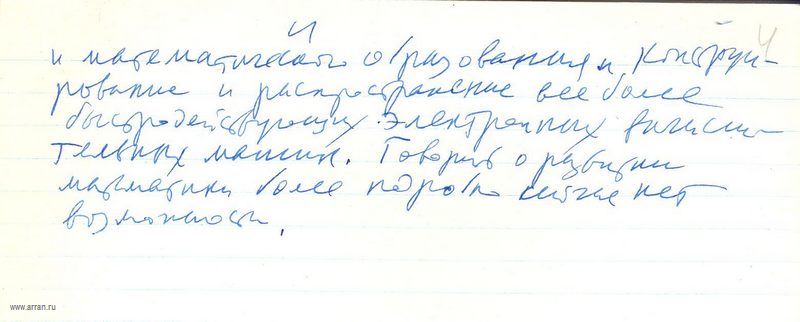 4
4
и математического образования и конструи-
рование и распространение все более
быстродействующих электронных вычисли-
тельных машин. Говорить о развитии
математики более подробно сейчас нет
возможности.
www.arran.ru